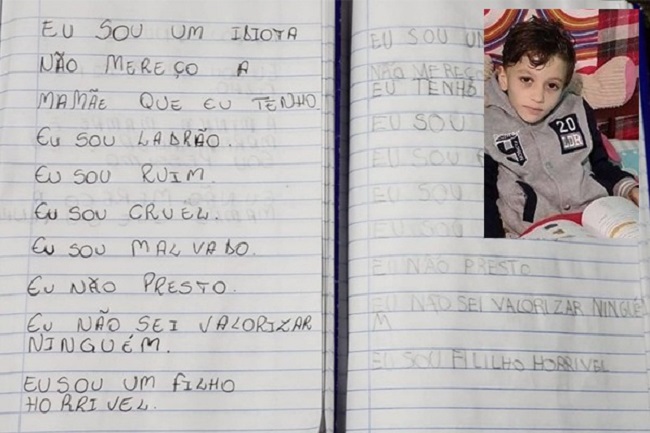 EU SOU UM IDIOTA
NÃO MEREÇO A
MAMÃE QUE EU TENHO
EU SOU LADRÃO.
EU SOU RUIM.
EU SOU CRUEL.
EU SOU MALVADO.
EU NÃO PRESTO.
EU NÃO SEI VALORIZAR
NINGUÉM.
EU SOU UM FILHO
HORRIVEL.
EU SOU UM
NÃO MEREÇO
EU TENHO
EU SOU
EU SOU
EU SOU
EU SOU
EU NÃO PRESTO
EU NÃO SEI VALORIZAR NINGUÉ
M
EU SOU FILILHO HORRIVEL
20